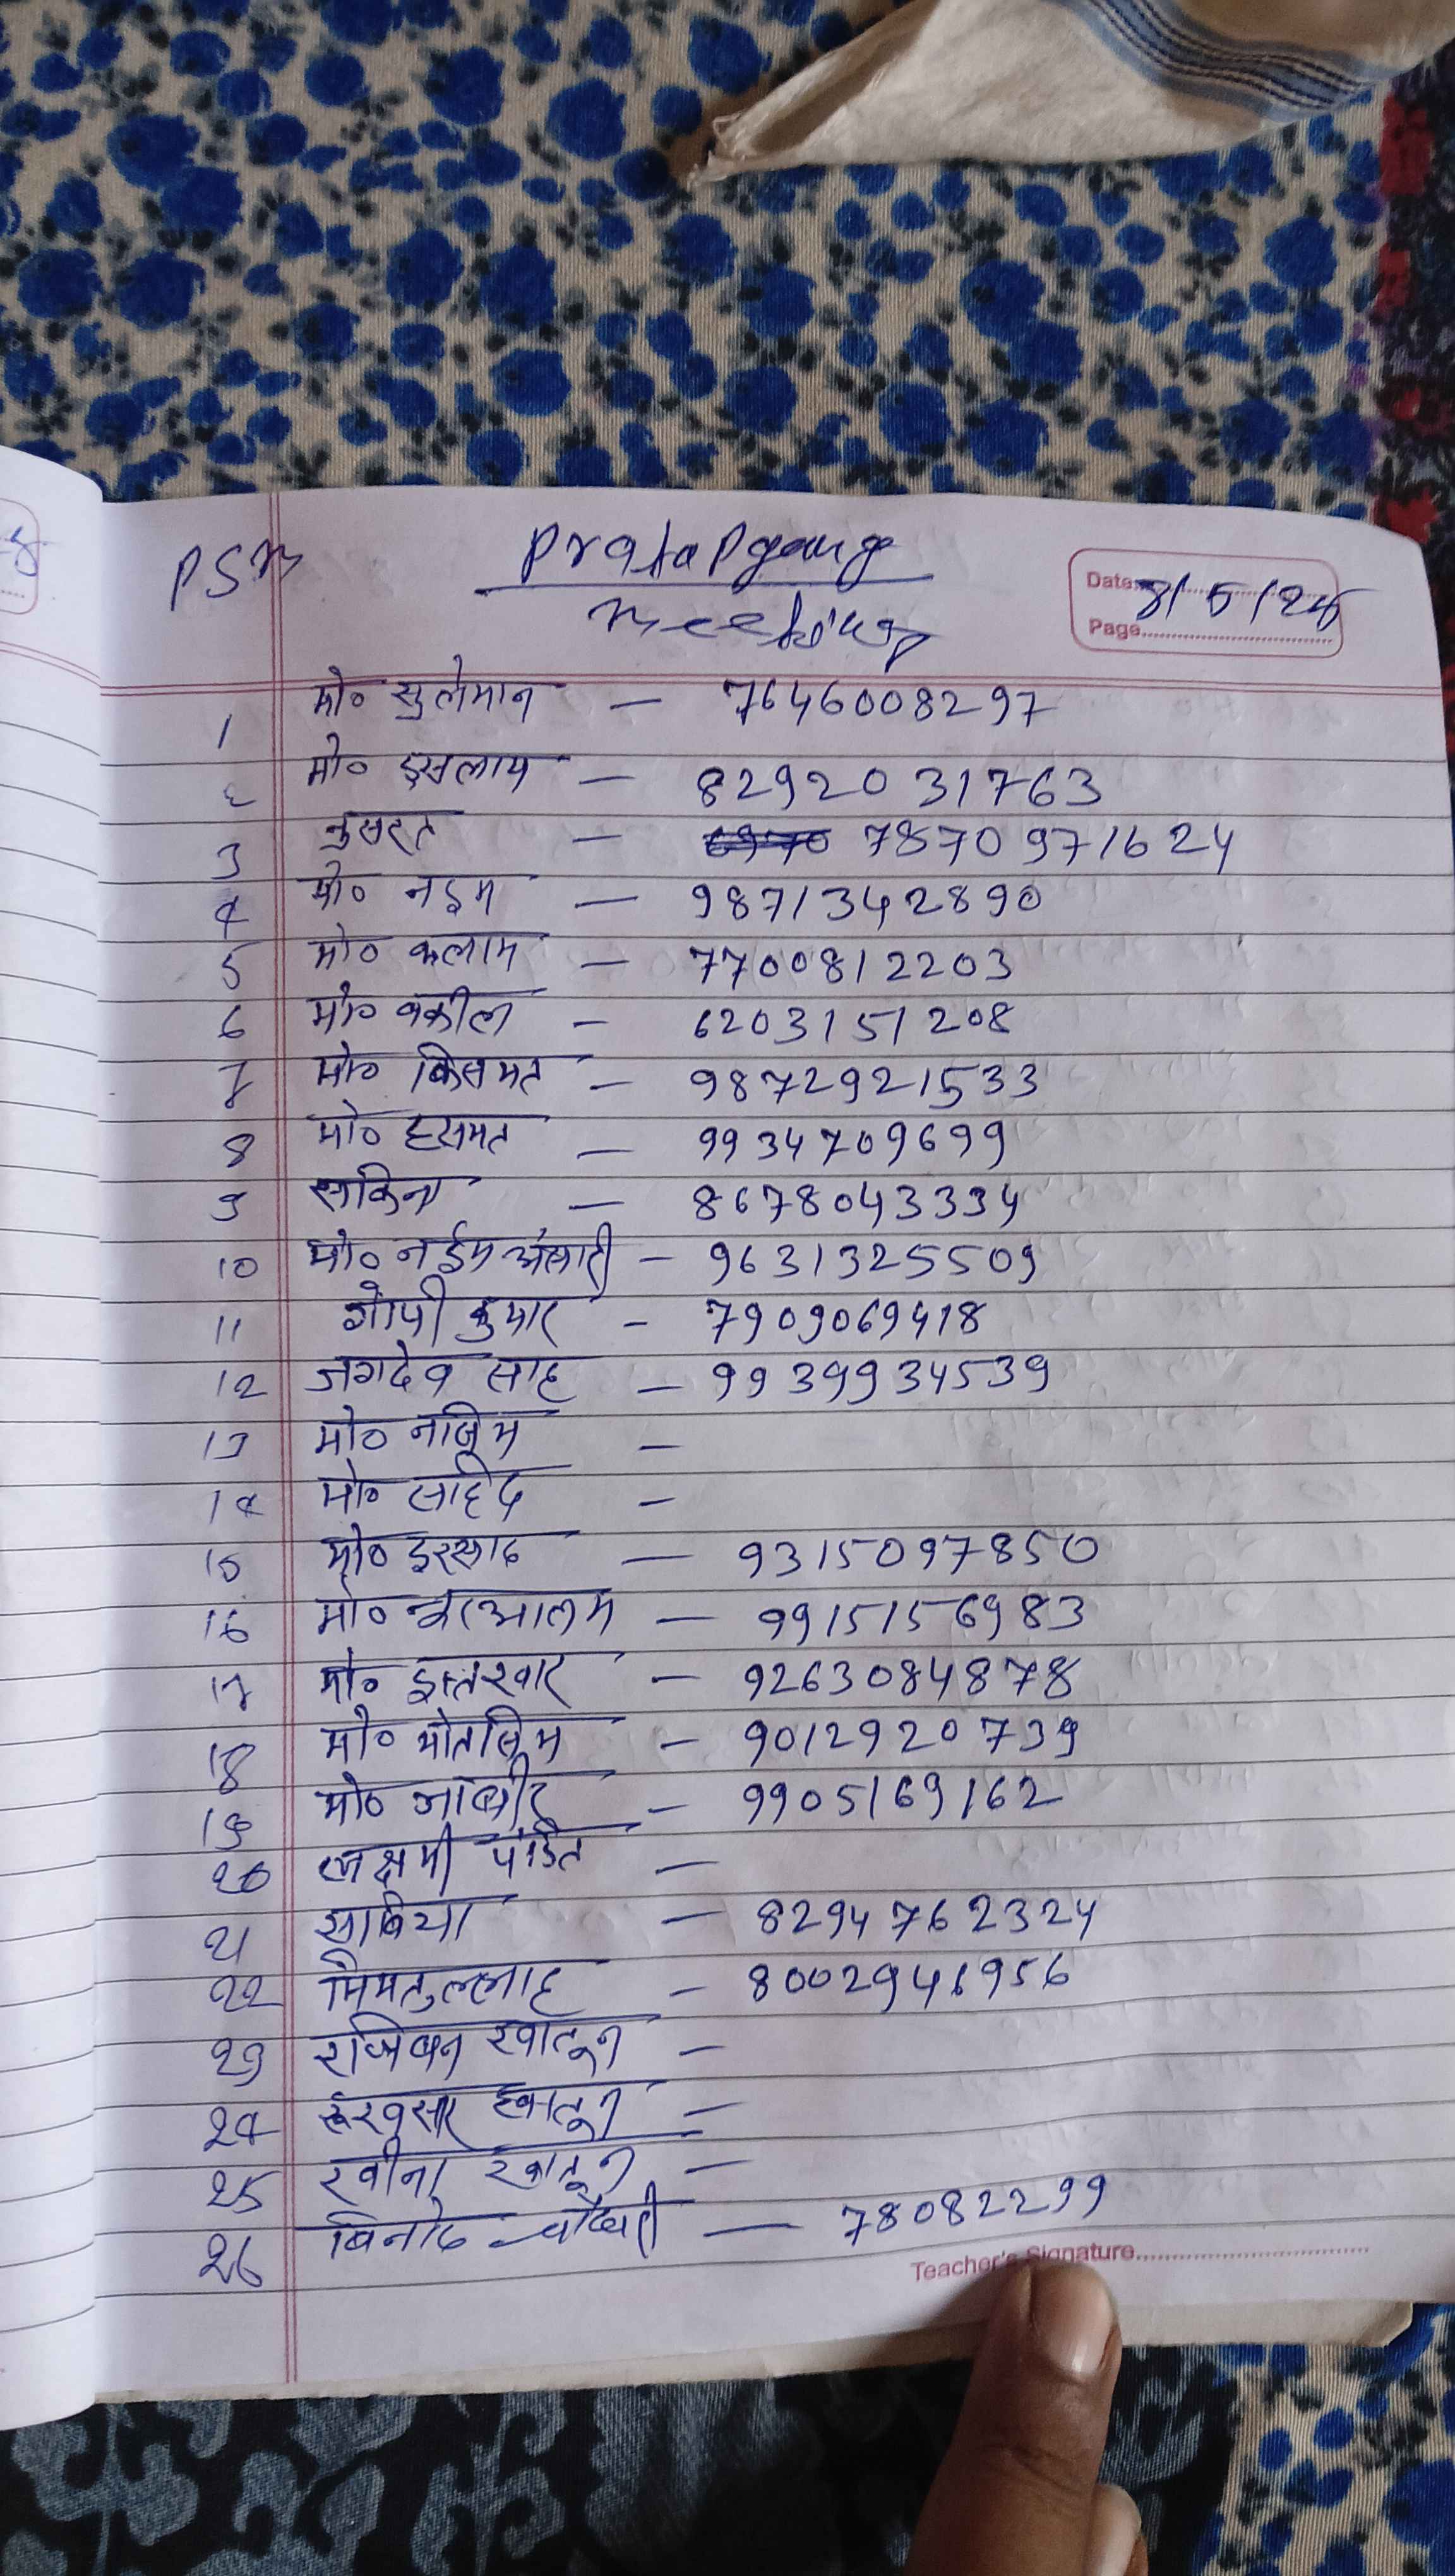 PSM Pratapgang
Meeting
Date 8/5/25
Page
1 मो० सुलेमान — 7646008297
2 मो० इसलाम — 8292031763
3 नुसरत — 7870971624
4 मो० नइम — 9871342890
5 मो० कलाम — 7700812203
6 मो० वकील — 6203151208
7 मो० किसमत — 9872921533
8 मो० हसमत — 9934709699
9 साकिना — 8678043334
10 मो० नईम अंसारी — 9631325509
11 गोपी कुमार — 7909069418
12 जगदेव साह — 9939934539
13 मो० नाजिम —
14 मो० साहिद —
15 मो० इरसाद — 9315097850
16 मो० नूरआलम — 9915156983
17 मो० इन्तखार — 9263084878
18 मो० मोतजिम — 9012920739
19 मो० जाबीर — 9905169162
20 लक्षमी पंडित —
21 साबिया — 8294762324
22 मिमतुल्लाह — 8002946956
23 रजिबन खातून —
24 रूखसार खातून —
25 रवीना खातून —
26 बिनोद चौधरी — 78082299
Teacher's Signature